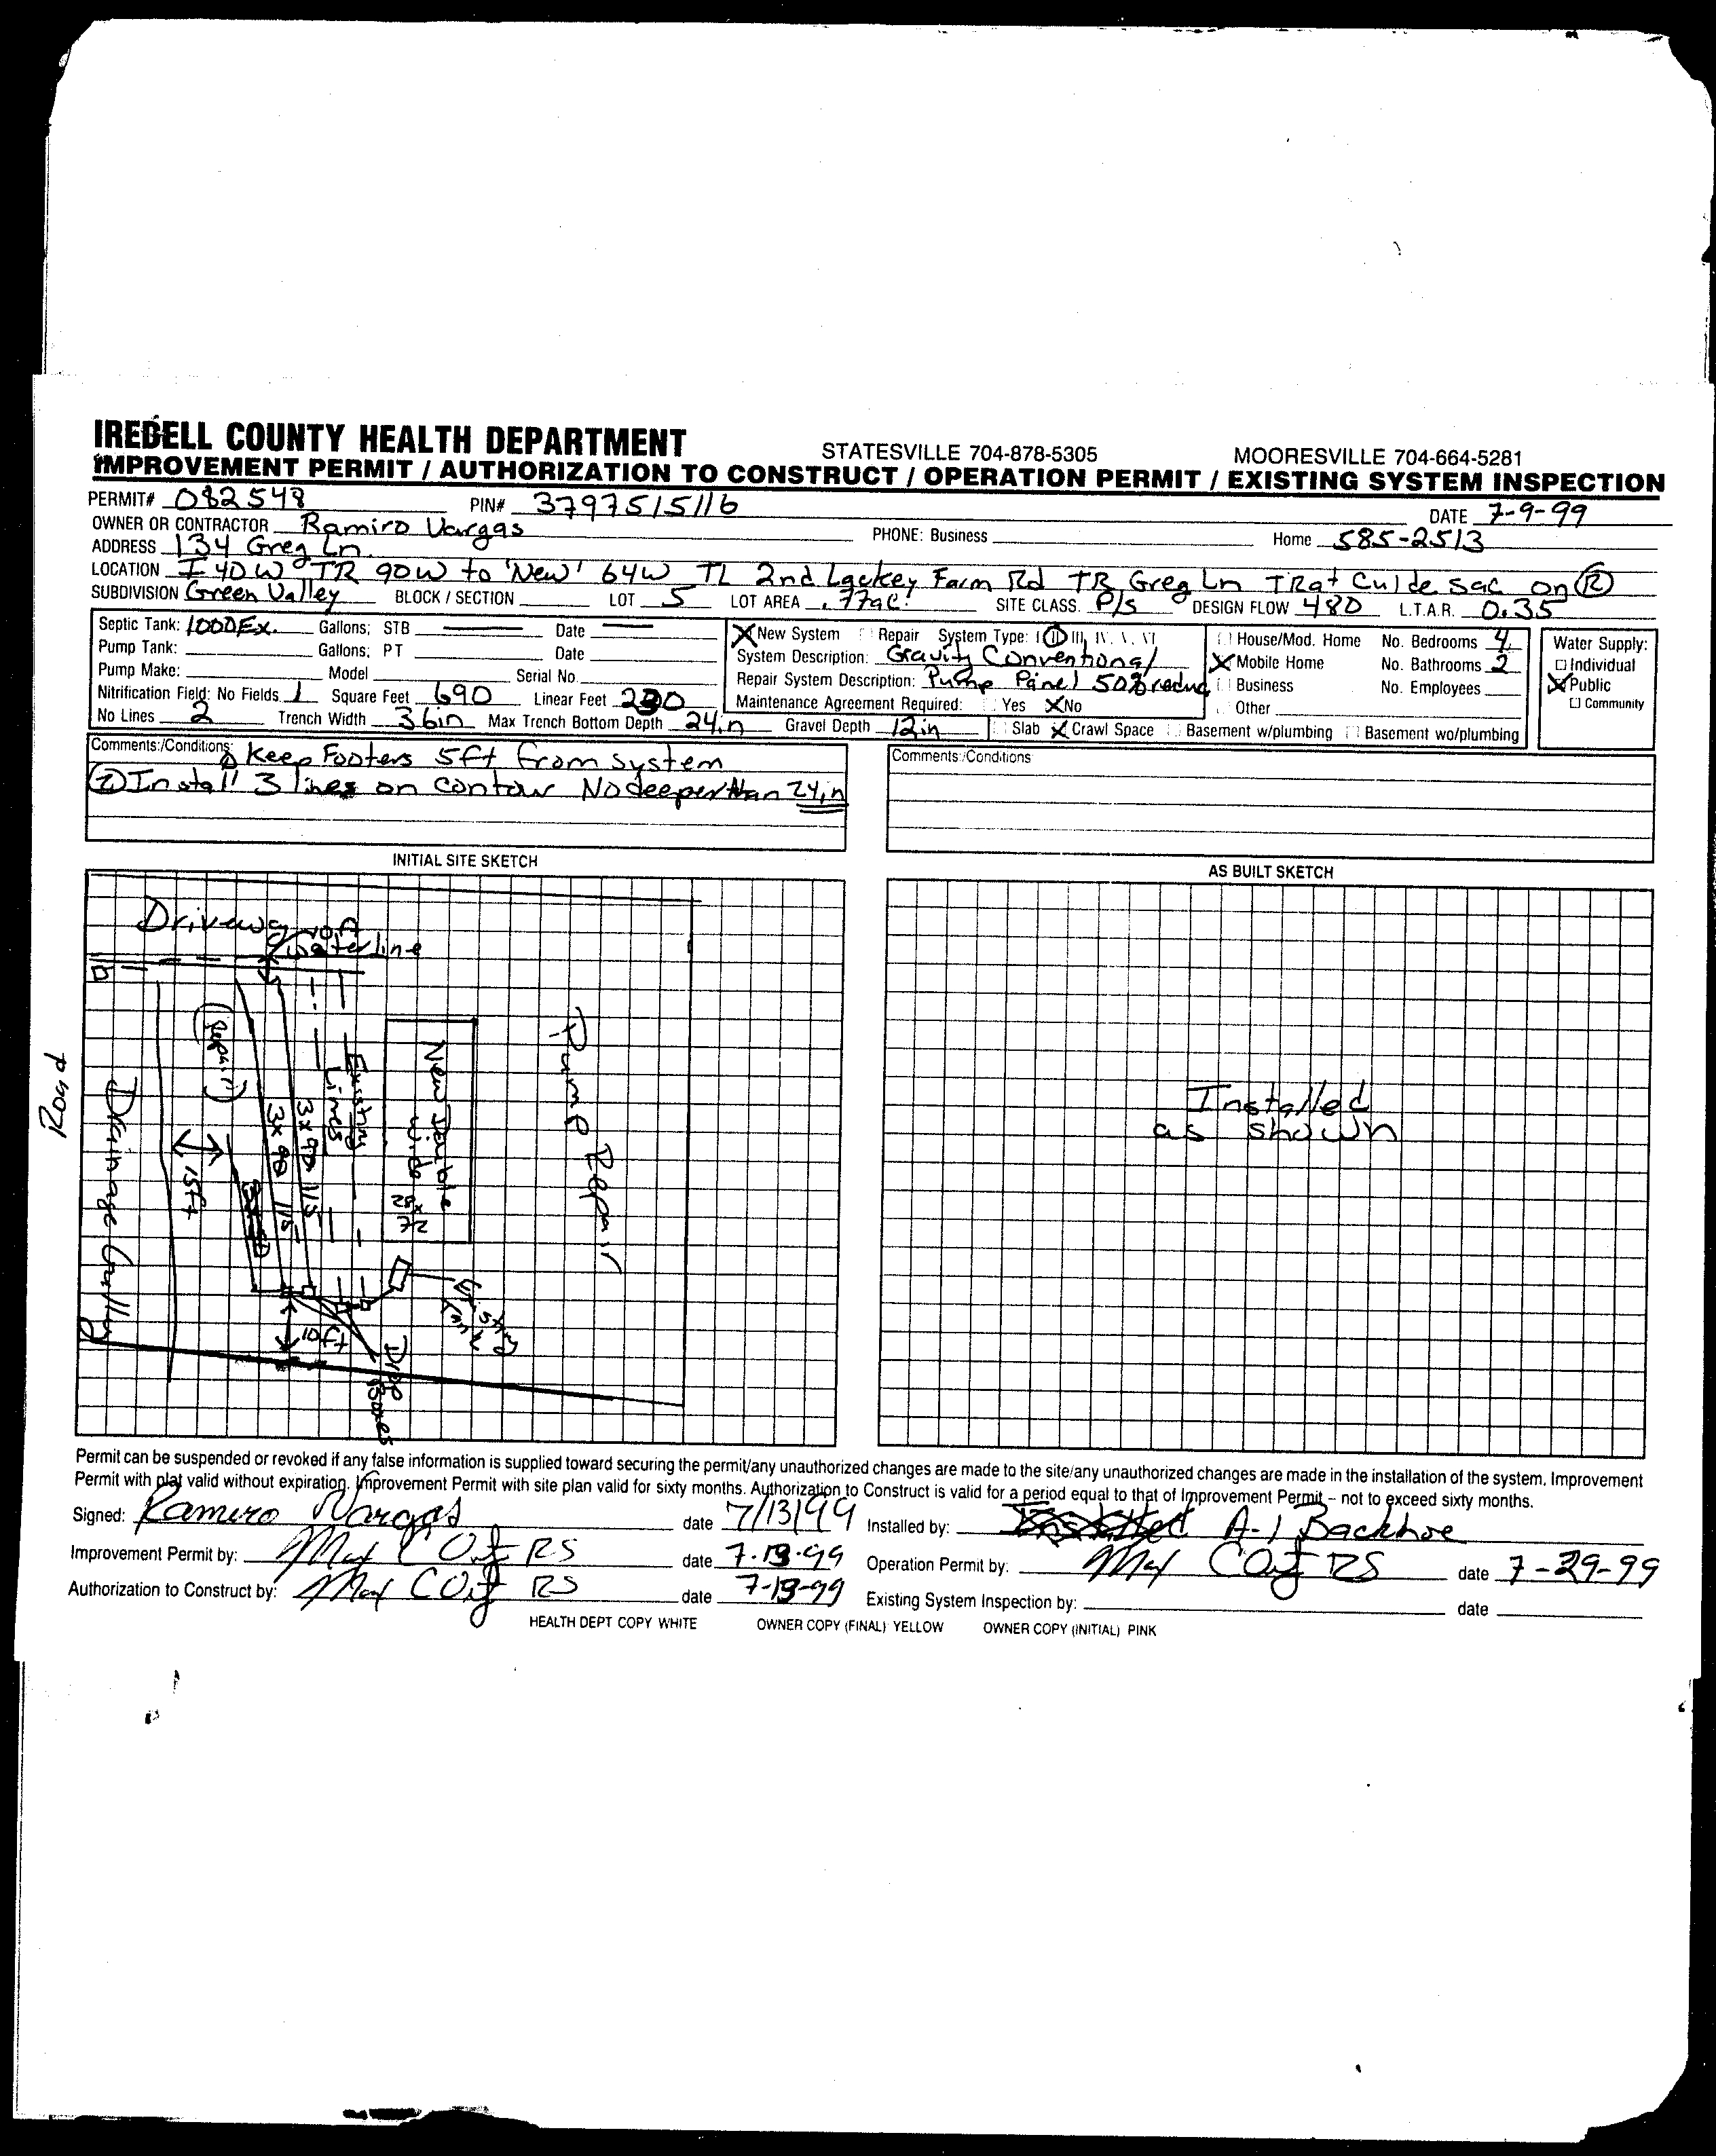 IREDELL COUNTY HEALTH DEPARTMENT STATESVILLE 704-878-5305 MOORESVILLE 704-664-5281
IMPROVEMENT PERMIT / AUTHORIZATION TO CONSTRUCT / OPERATION PERMIT / EXISTING SYSTEM INSPECTION
PERMIT# 082548 PIN# 3797515116 DATE 7-9-99
OWNER OR CONTRACTOR Ramiro Vargas PHONE: Business Home 585-2513
ADDRESS 134 Greg Ln
LOCATION I 40 W TR 90W to 'New' 64W TL 2nd Lackey Farm Rd TR Greg Ln TR at Cul de sac on R
SUBDIVISION Green Valley BLOCK / SECTION LOT 5 LOT AREA .77ac. SITE CLASS. P/S DESIGN FLOW 480 L.T.A.R. 0.35
Septic Tank: 1000 Ex. Gallons; STB Date
Pump Tank: Gallons; PT Date
Pump Make: Model Serial No.
Nitrification Field: No Fields 1 Square Feet 690 Linear Feet 230
No Lines 2 Trench Width 36in Max Trench Bottom Depth 24in Gravel Depth 12in
X New System Repair System Type: I II III, IV, V, VI
System Description: Gravity Conventional
Repair System Description: Pump Panel 50% reduc
Maintenance Agreement Required: Yes X No
Slab X Crawl Space Basement w/plumbing Basement wo/plumbing
House/Mod. Home No. Bedrooms 4
X Mobile Home No. Bathrooms 2
Business No. Employees
Other
Water Supply:
Individual
X Public
Community
Comments:/Conditions: 1 Keep Footers 5ft from system
2 Install 3 lines on contour No deeper than 24in
Comments:/Conditions
INITIAL SITE SKETCH
Driveway 10ft
waterline
Road
Drainage Gulley
(Repair)
15ft
3x90 1/s
3x90 1/s
Existing
Lines
New Double
Wide
28x
72
Pump Repair
Existing
Tank
10ft
Drop
Boxes
AS BUILT SKETCH
Installed
as shown
Permit can be suspended or revoked if any false information is supplied toward securing the permit/any unauthorized changes are made to the site/any unauthorized changes are made in the installation of the system. Improvement
Permit with plat valid without expiration. Improvement Permit with site plan valid for sixty months. Authorization to Construct is valid for a period equal to that of Improvement Permit – not to exceed sixty months.
Signed: Ramiro Vargas date 7/13/99 Installed by: A-1 Backhoe
Improvement Permit by: RS date 7-13-99 Operation Permit by: RS date 7-29-99
Authorization to Construct by: RS date 7-13-99 Existing System Inspection by: date
HEALTH DEPT COPY WHITE OWNER COPY (FINAL) YELLOW OWNER COPY (INITIAL) PINK